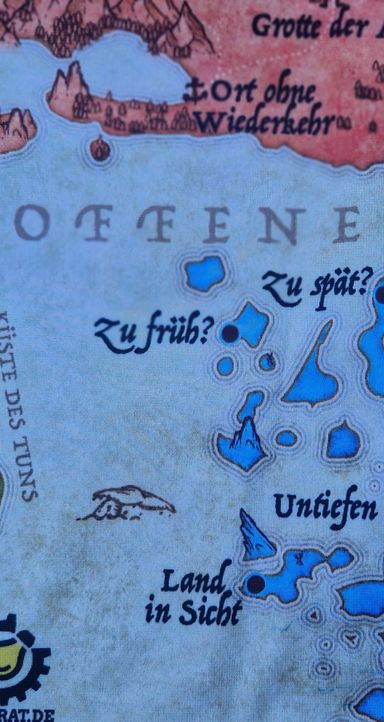 Grotte der
Ort ohne
Wiederkehr
OFFENE
Zu spät?
Zu früh?
KÜSTE DES TUNS
Untiefen
Land
in Sicht
RAT.DE